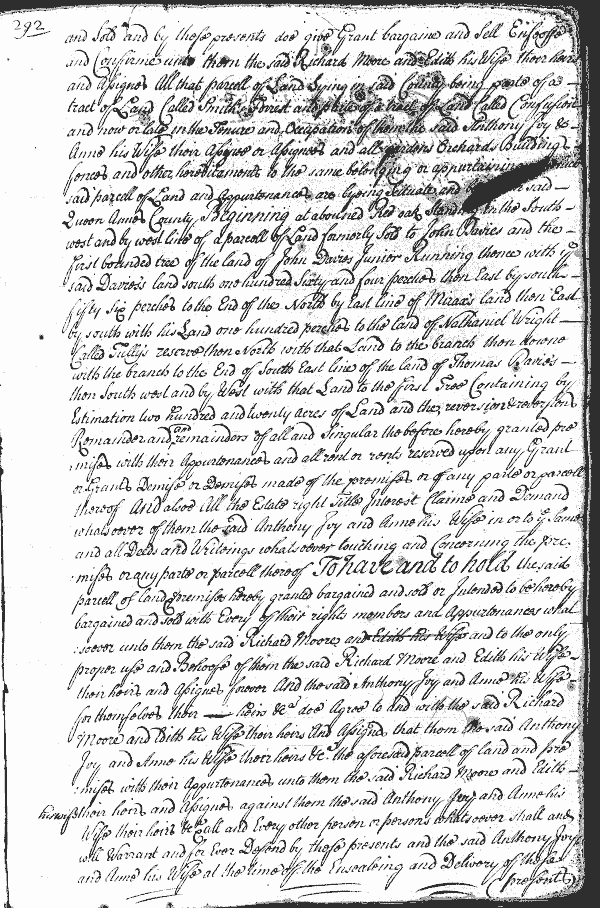 292
and Sold and by these presents doe give Grant bargaine and Sell Enfeoffe
and Confirme unto them the said Richard Moore and Edith his Wife their heirs
and Assignes All that parcell of Land Lying in said County being parte of a
tract of Land Called Smiths Forrest and parte of a tract of Land Called Confusion
and now or late in the Tenure and Occupation of them the said Anthony Ivy &
Anne his Wife their Assignes or Assignees and all gardens Orchards Buildings
fences and other hereditaments to the same belonging or appurtaining
said parcell of Land and Appurtenances are lyeing Scituate and said
Queen Annes County Beginning at abounded Red oak Standing In the South
west and by west line of a parcell of Land formerly Sold to John Davies and the
first bounded tree of the land of John Davies Junior Running thence with ye
said Davies's land south one hundred Sixty and four perches then East by south
fifty Six perches to the End of the North by East line of land then East
by south with his Land one hundred perches to the land of Nathaniel Wright
Called Tully's reserve then North with that Land to the branch then downe
with the branch to the End of South East line of the land of Thomas Davies
then South west and by West with that Land to the first Tree Containing by
Estimation two hundred and twenty acres of Land and the reversion & reversions
Remainder and and remainders of all and Singular the before hereby granted pre
:mises with their Appurtenances and all rent or rents reserved upon any Grant
or Grants Demise or Demises made of the premises or of any parte or parcell
thereof And alsoe All the Estate right Title Interest Claime and Demand
whatsoever of them the said Anthony Ivy and Anne his Wife in or to ye Same
and all Deeds and Writeings whatsoever touching and Concerning the pre
:mises or any parte or parcell thereof To have and to hold the said
parcell of land & premises hereby granted bargained and sold or Intended to be hereby
bargained and sold with Every of their rights members and Appurtenances what
:soever unto them the said Richard Moore and Edith his Wife and to the only
proper use and Behoofe of them the said Richard Moore and Edith his Wife
their heirs and Assignes forever And the said Anthony Ivy and Anne his Wife
for themselves their heirs &ca doe Agree to and with the said Richard
Moore and Edith his Wife their heirs And Assignes that them the said Anthony
Ivy and Anne his Wife their heirs &c. the aforesaid parcell of land and pre
:mises with their Appurtenances unto them the said Richard Moore and Edith
his wife their heirs and Assignes against them the said Anthony Ivy and Anne his
Wife their heirs &c & all and Every other person or persons whatsoever shall and
will Warrant and for Ever Defend by these presents and the said Anthony Ivy
and Anne his Wife at the time of the Ensealeing and Delivery of these
presents